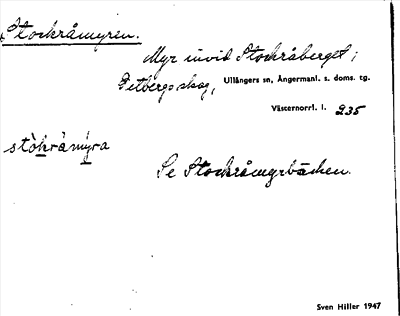 Stockråmyren.
Myr invid Stockråberget i
Getbergsskog, Ullångers sn, Ångermanl. s. doms. tg.
Västernorrl. l. 235
stòkràmýra
Se Stockråmyrbäcken.
Sven Hiller 1947